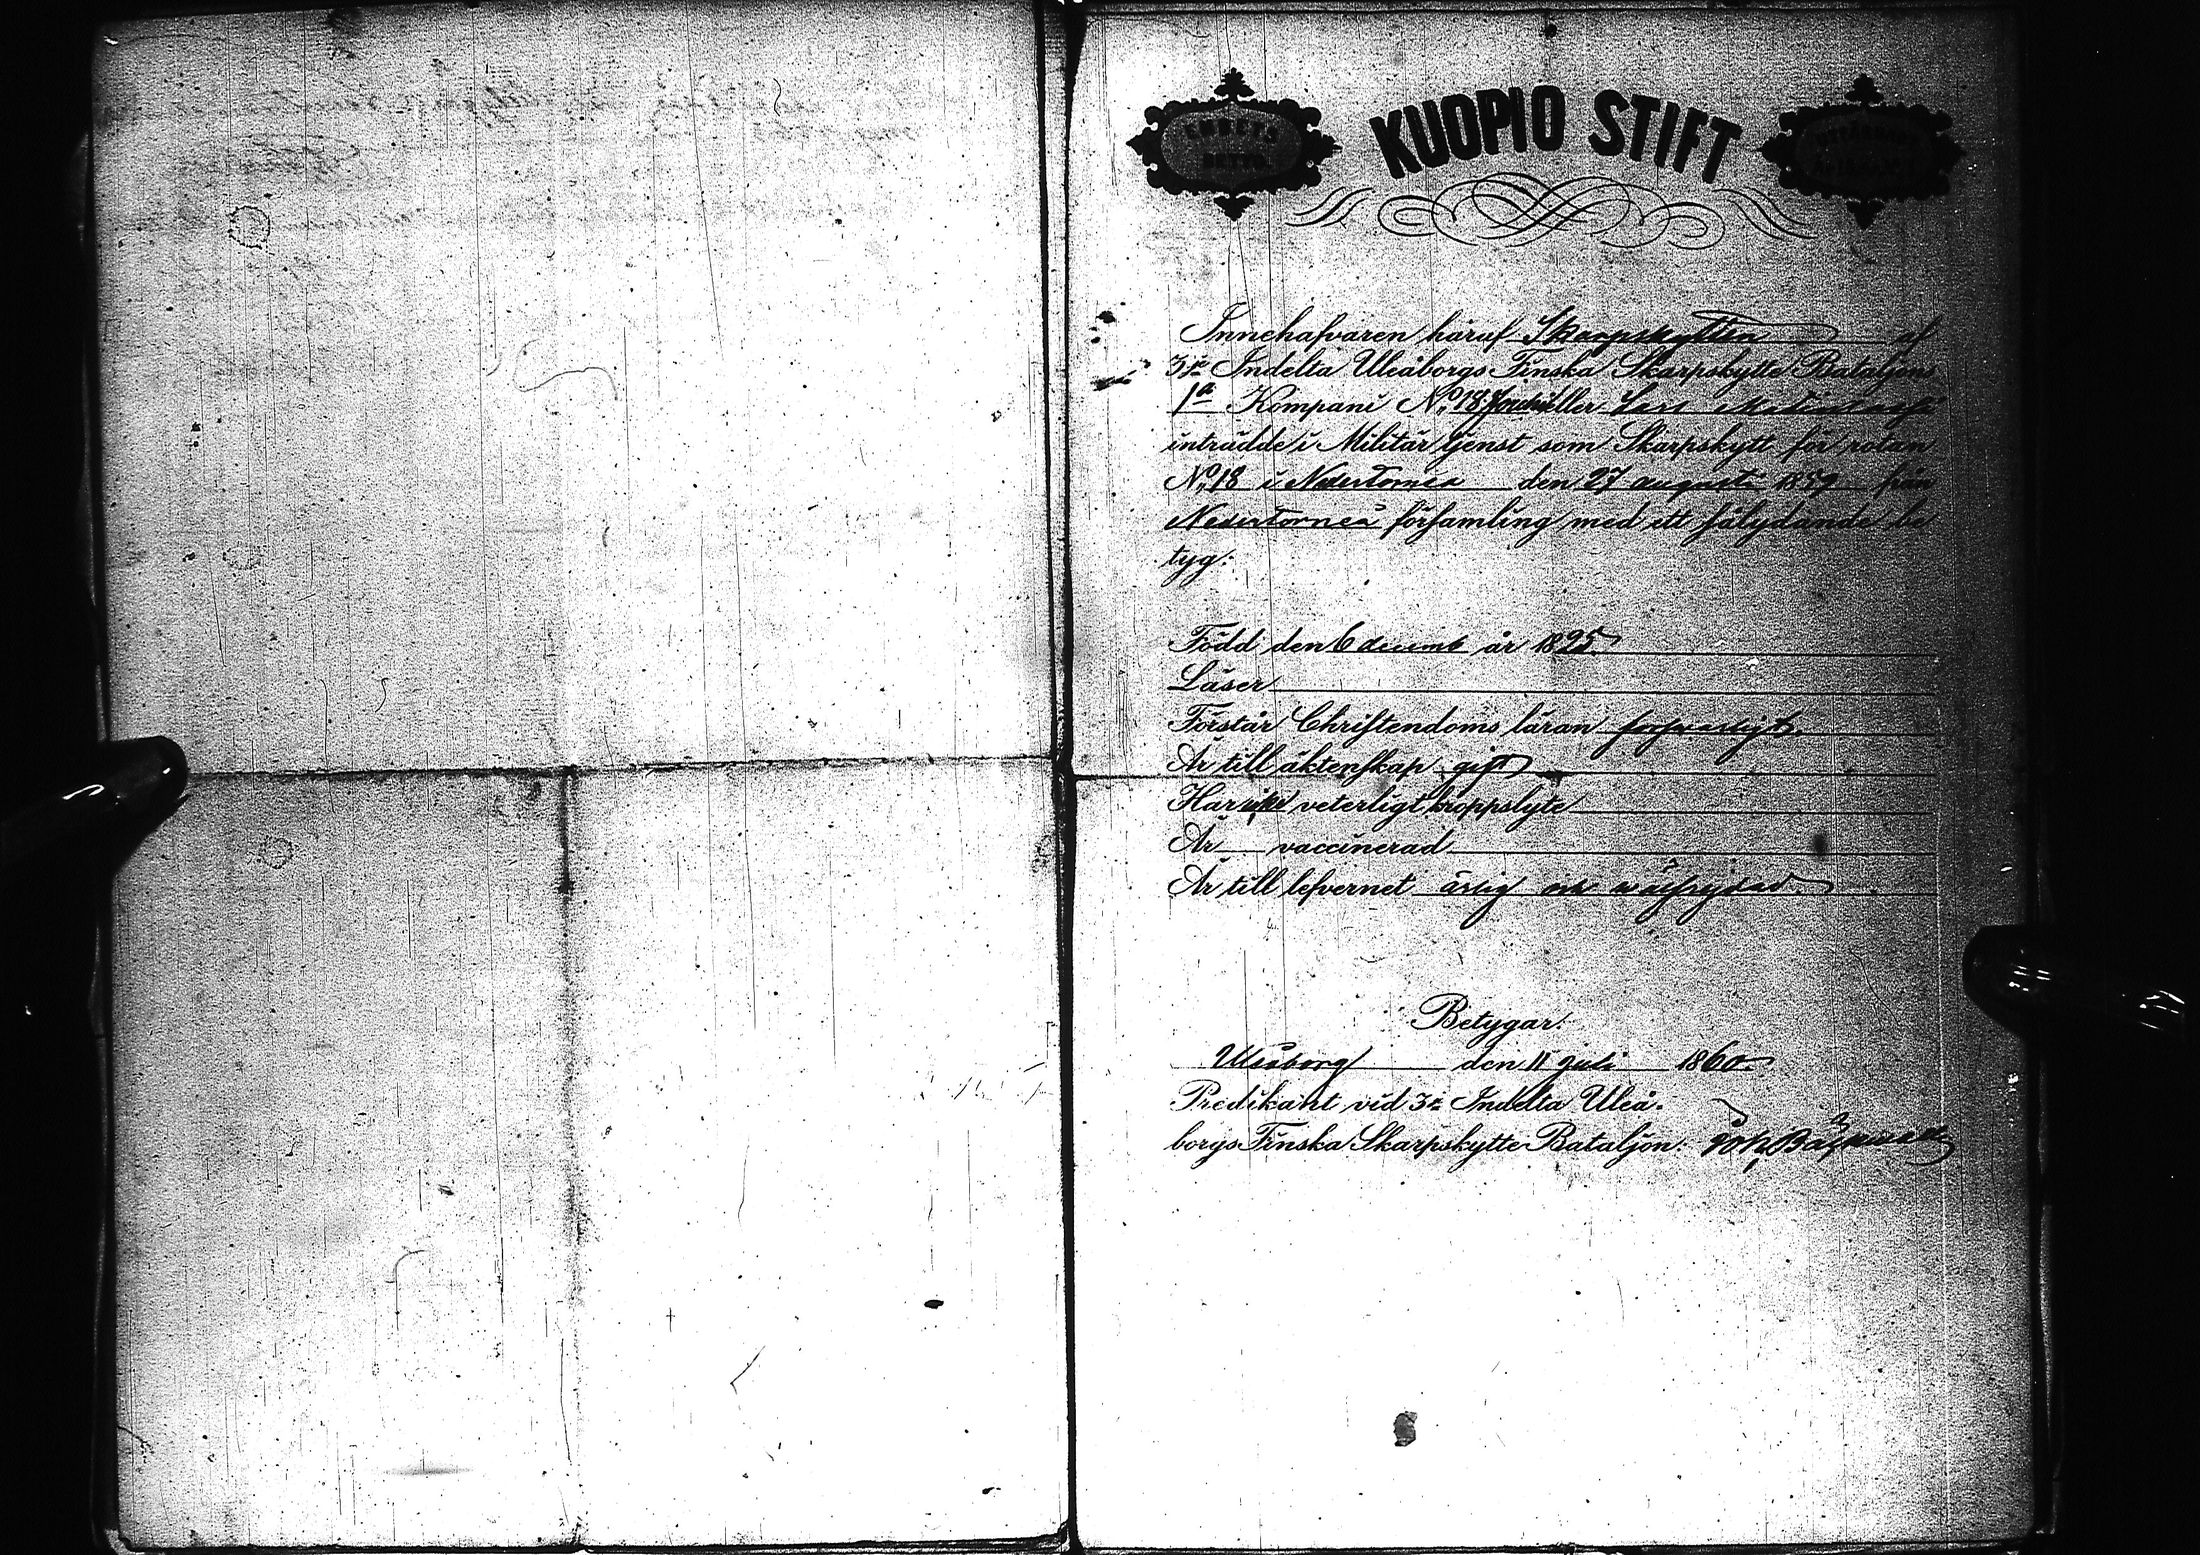 KUOPIO STIFT
EMBETS
BETYG
Innehafvaren häraf Skarpskytten af
3je Indelta Uleåborgs Finska Skarpskytte Bataljons
1a Kompani No 18 eller Lars
inträdde i Militär tjenst som Skarpskytt för rotan
No 18 i Nedertorneå den 27 augusti 1859 från
Nedertorneå församling med ett sålydande be
tyg:
Född den 6 decemb år 1825
Läser
Förstår Christendoms läran försvarligt.
Är till äktenskap gift
Har icke veterligt kroppslyte
Är vaccinerad
Är till lefvernet ärlig och wälfrejdad
Betygar:
Uleåborg den 11 Juli 1860.
Predikant vid 3e Indelta Uleå-
borgs Finska Skarpskytte Bataljon: Joh.